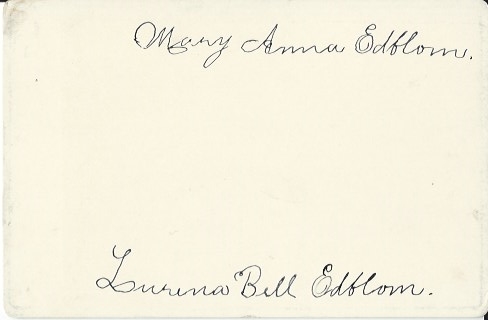 Mary Anna Edblom.
Lurena Bell Edblom.